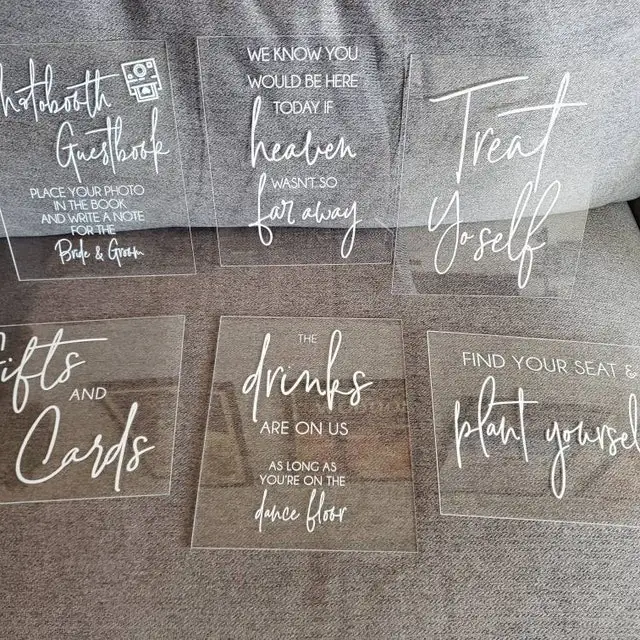 hotobooth
Guestbook
PLACE YOUR PHOTO
IN THE BOOK
AND WRITE A NOTE
FOR THE
Bride & Groom
WE KNOW YOU
WOULD BE HERE
TODAY IF
heaven
WASN'T SO
far away
Treat
Yoself
ifts
AND
Cards
THE
drinks
ARE ON US
AS LONG AS
YOU'RE ON THE
dance floor
FIND YOUR SEAT &
plant yoursel